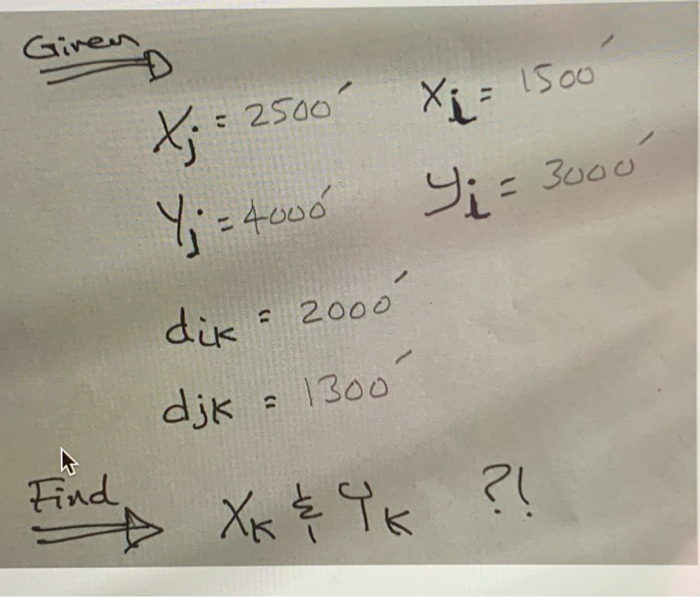 Given
Xj = 2500' Xi = 1500'
Yj = 4000' Yi = 3000'
dik = 2000'
djk = 1300'
Find XK & YK ?!